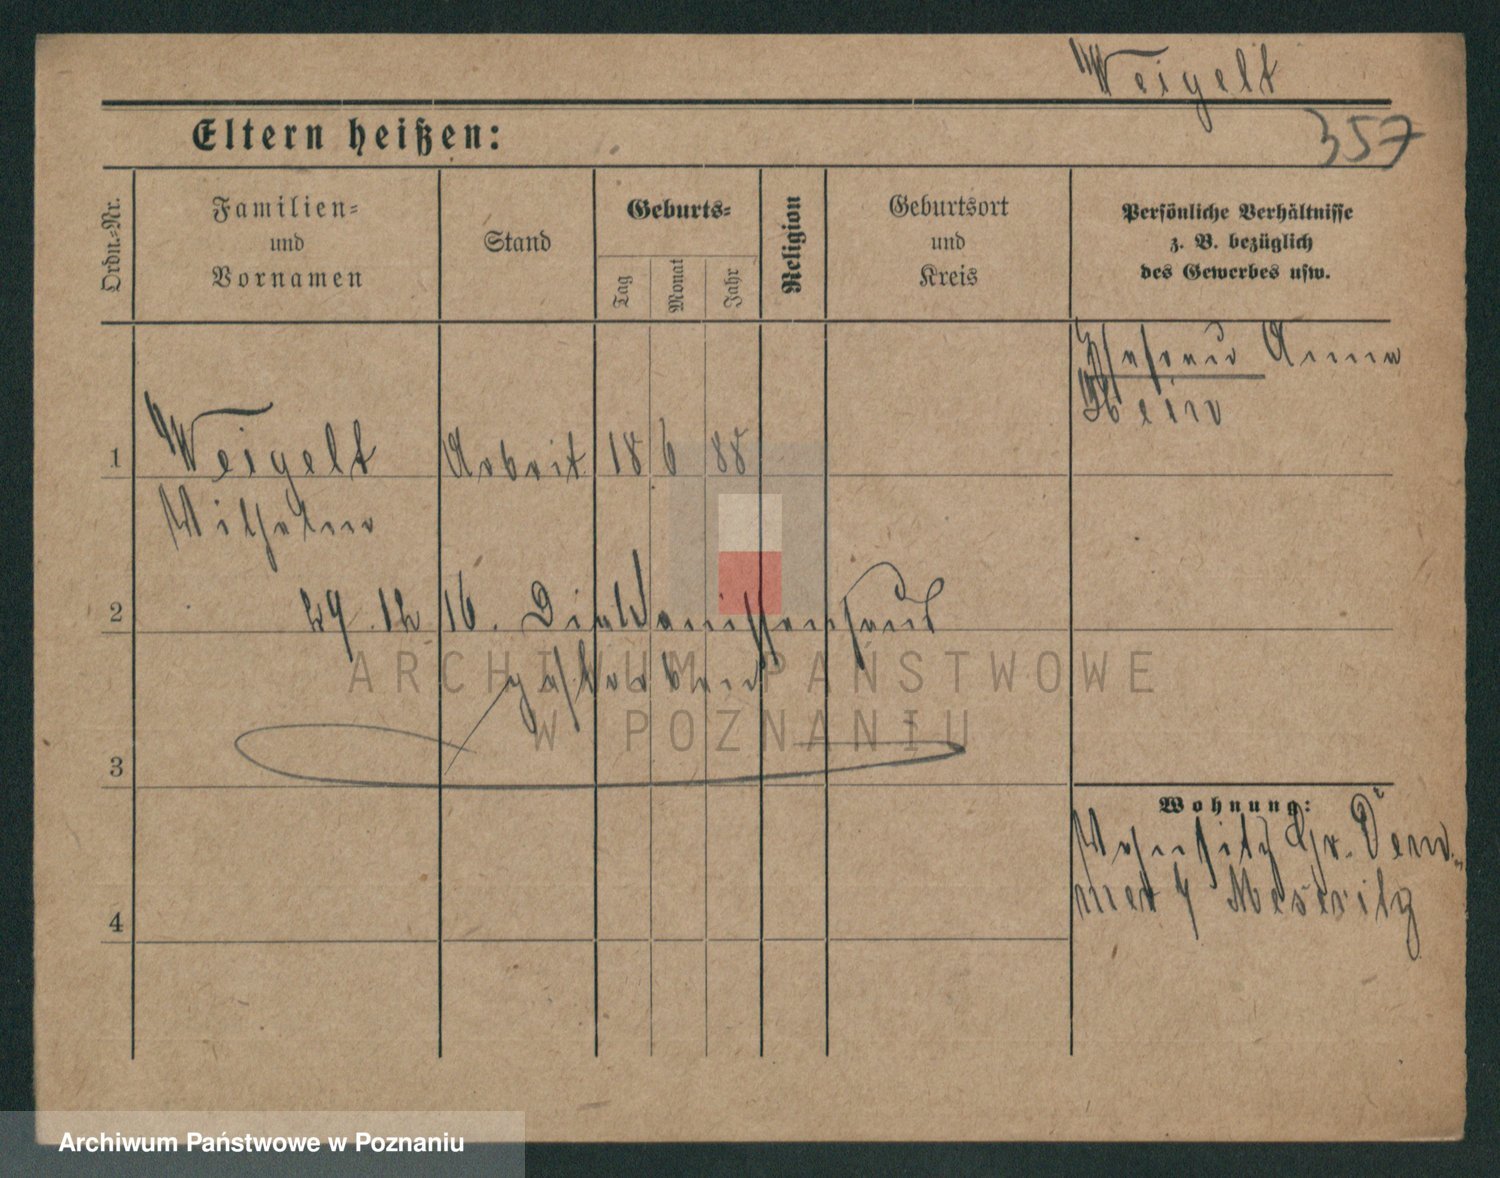 Weigelt
357
Eltern heißen:
Ordn.-Nr.
Familien-
und
Vornamen
Stand
Geburts-
Tag
Monat
Jahr
Religion
Geburtsort
und
Kreis
Persönliche Verhältnisse
z. B. bezüglich
des Gewerbes usw.
Ehefrau Anna
1
Weigelt
Arbeit
18
6
88
Wilhelm
2
29. 12 16. Diakonissenhaus
gestorben
ARCHIWUM PAŃSTWOWE
W POZNANIU
3
Wohnung:
Wohnsitz Gr.
4
Meseritz
Archiwum Państwowe w Poznaniu